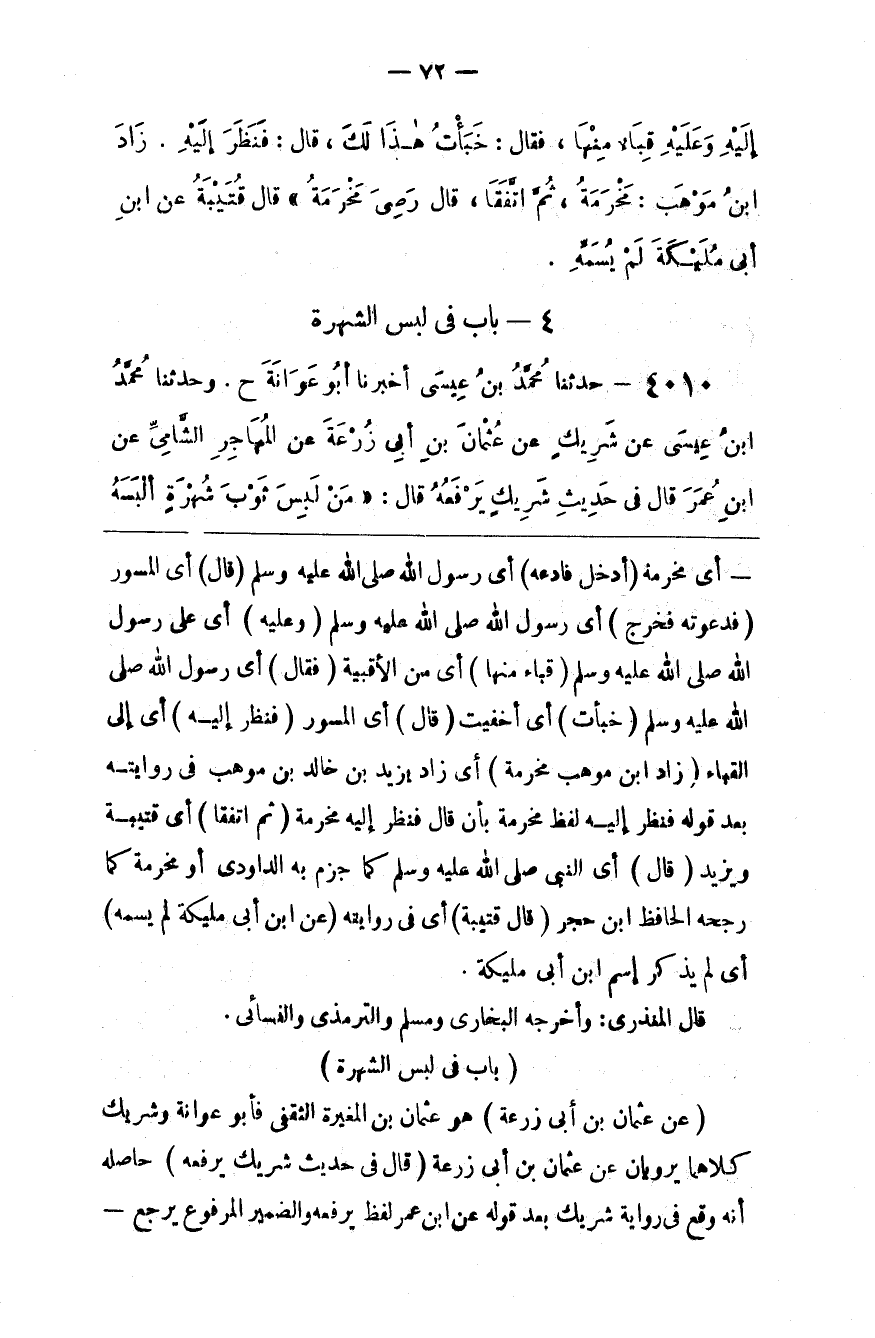 — ٧٢ —
إِلَيْهِ وَعَلَيْهِ قِبَاءٌ مِنْهَا ، فقال : خَبَأْتُ هٰـذَا لَكَ ، قال : فَنَظَرَ إِلَيْهِ . زَادَ
ابنُ مَوْهَبَ : مَخْرَمَةُ ، ثُمَّ اتَّفَقَا ، قال رَضِىَ مَخْرَمَةُ » قال قُتَيْبَةُ عن ابنِ
أبى مُلَيْـكَةَ لَمْ يُسَمِّهِ .
٤ — باب فى لبس الشهرة
٤٠١٠ — حدثنا مُحمَّدُ بنُ عِيسَى أخبرنا أبُو عَوَانَةَ ح . وحدثنا مُحمَّدُ
ابنُ عِيسَى عن شَرِيكٍ عن عُثْمَانَ بنِ أَبِى زُرْعَةَ عن المُهَاجِرِ الشَّامِىِّ عن
ابنِ عُمَرَ قال فى حَدِيثِ شَرِيكٍ يَرْفَعُهُ قال : « مَنْ لَبِسَ ثَوْبَ شُهْرَةٍ ألْبَسَهُ
— أى مخرمة (أدخل فادعه) أى رسول الله صلى الله عليه وسلم (قال) أى المسور
( فدعوته فخرج ) أى رسول الله صلى الله عليه وسلم ( وعليه ) أى على رسول
الله صلى الله عليه وسلم ( قباء منها ) أى من الأقبية ( فقال ) أى رسول الله صلى
الله عليه وسلم ( خبأت ) أى أخفيت ( قال ) أى المسور ( فنظر إليـه ) أى إلى
القباء ( زاد ابن موهب مخرمة ) أى زاد يزيد بن خالد بن موهب فى روايتـه
بعد قوله فنظر إليـه لفظ مخرمة بأن قال فنظر إليه مخرمة ( ثم اتفقا ) أى قتيبـة
ويزيد ( قال ) أى النبى صلى الله عليه وسلم كما جزم به الداودى أو مخرمة كما
رجحه الحافظ ابن حجر ( قال قتيبة) أى فى روايته (عن ابن أبى مليكة لم يسمه)
أى لم يذكر إسم ابن أبى مليكة .
قال المنذرى : وأخرجه البخارى ومسلم والترمذى والنسائى .
( باب فى لبس الشهرة )
( عن عثمان بن أبى زرعة ) هو عثمان بن المغيرة الثقفى فأبو عوانة وشريك
كـلاهما يرويان عن عثمان بن أبى زرعة ( قال فى حديث شريك يرفعه ) حاصله
أنه وقع فى رواية شريك بعد قوله عن ابن عمر لفظ يرفعه والضمير المرفوع يرجع —